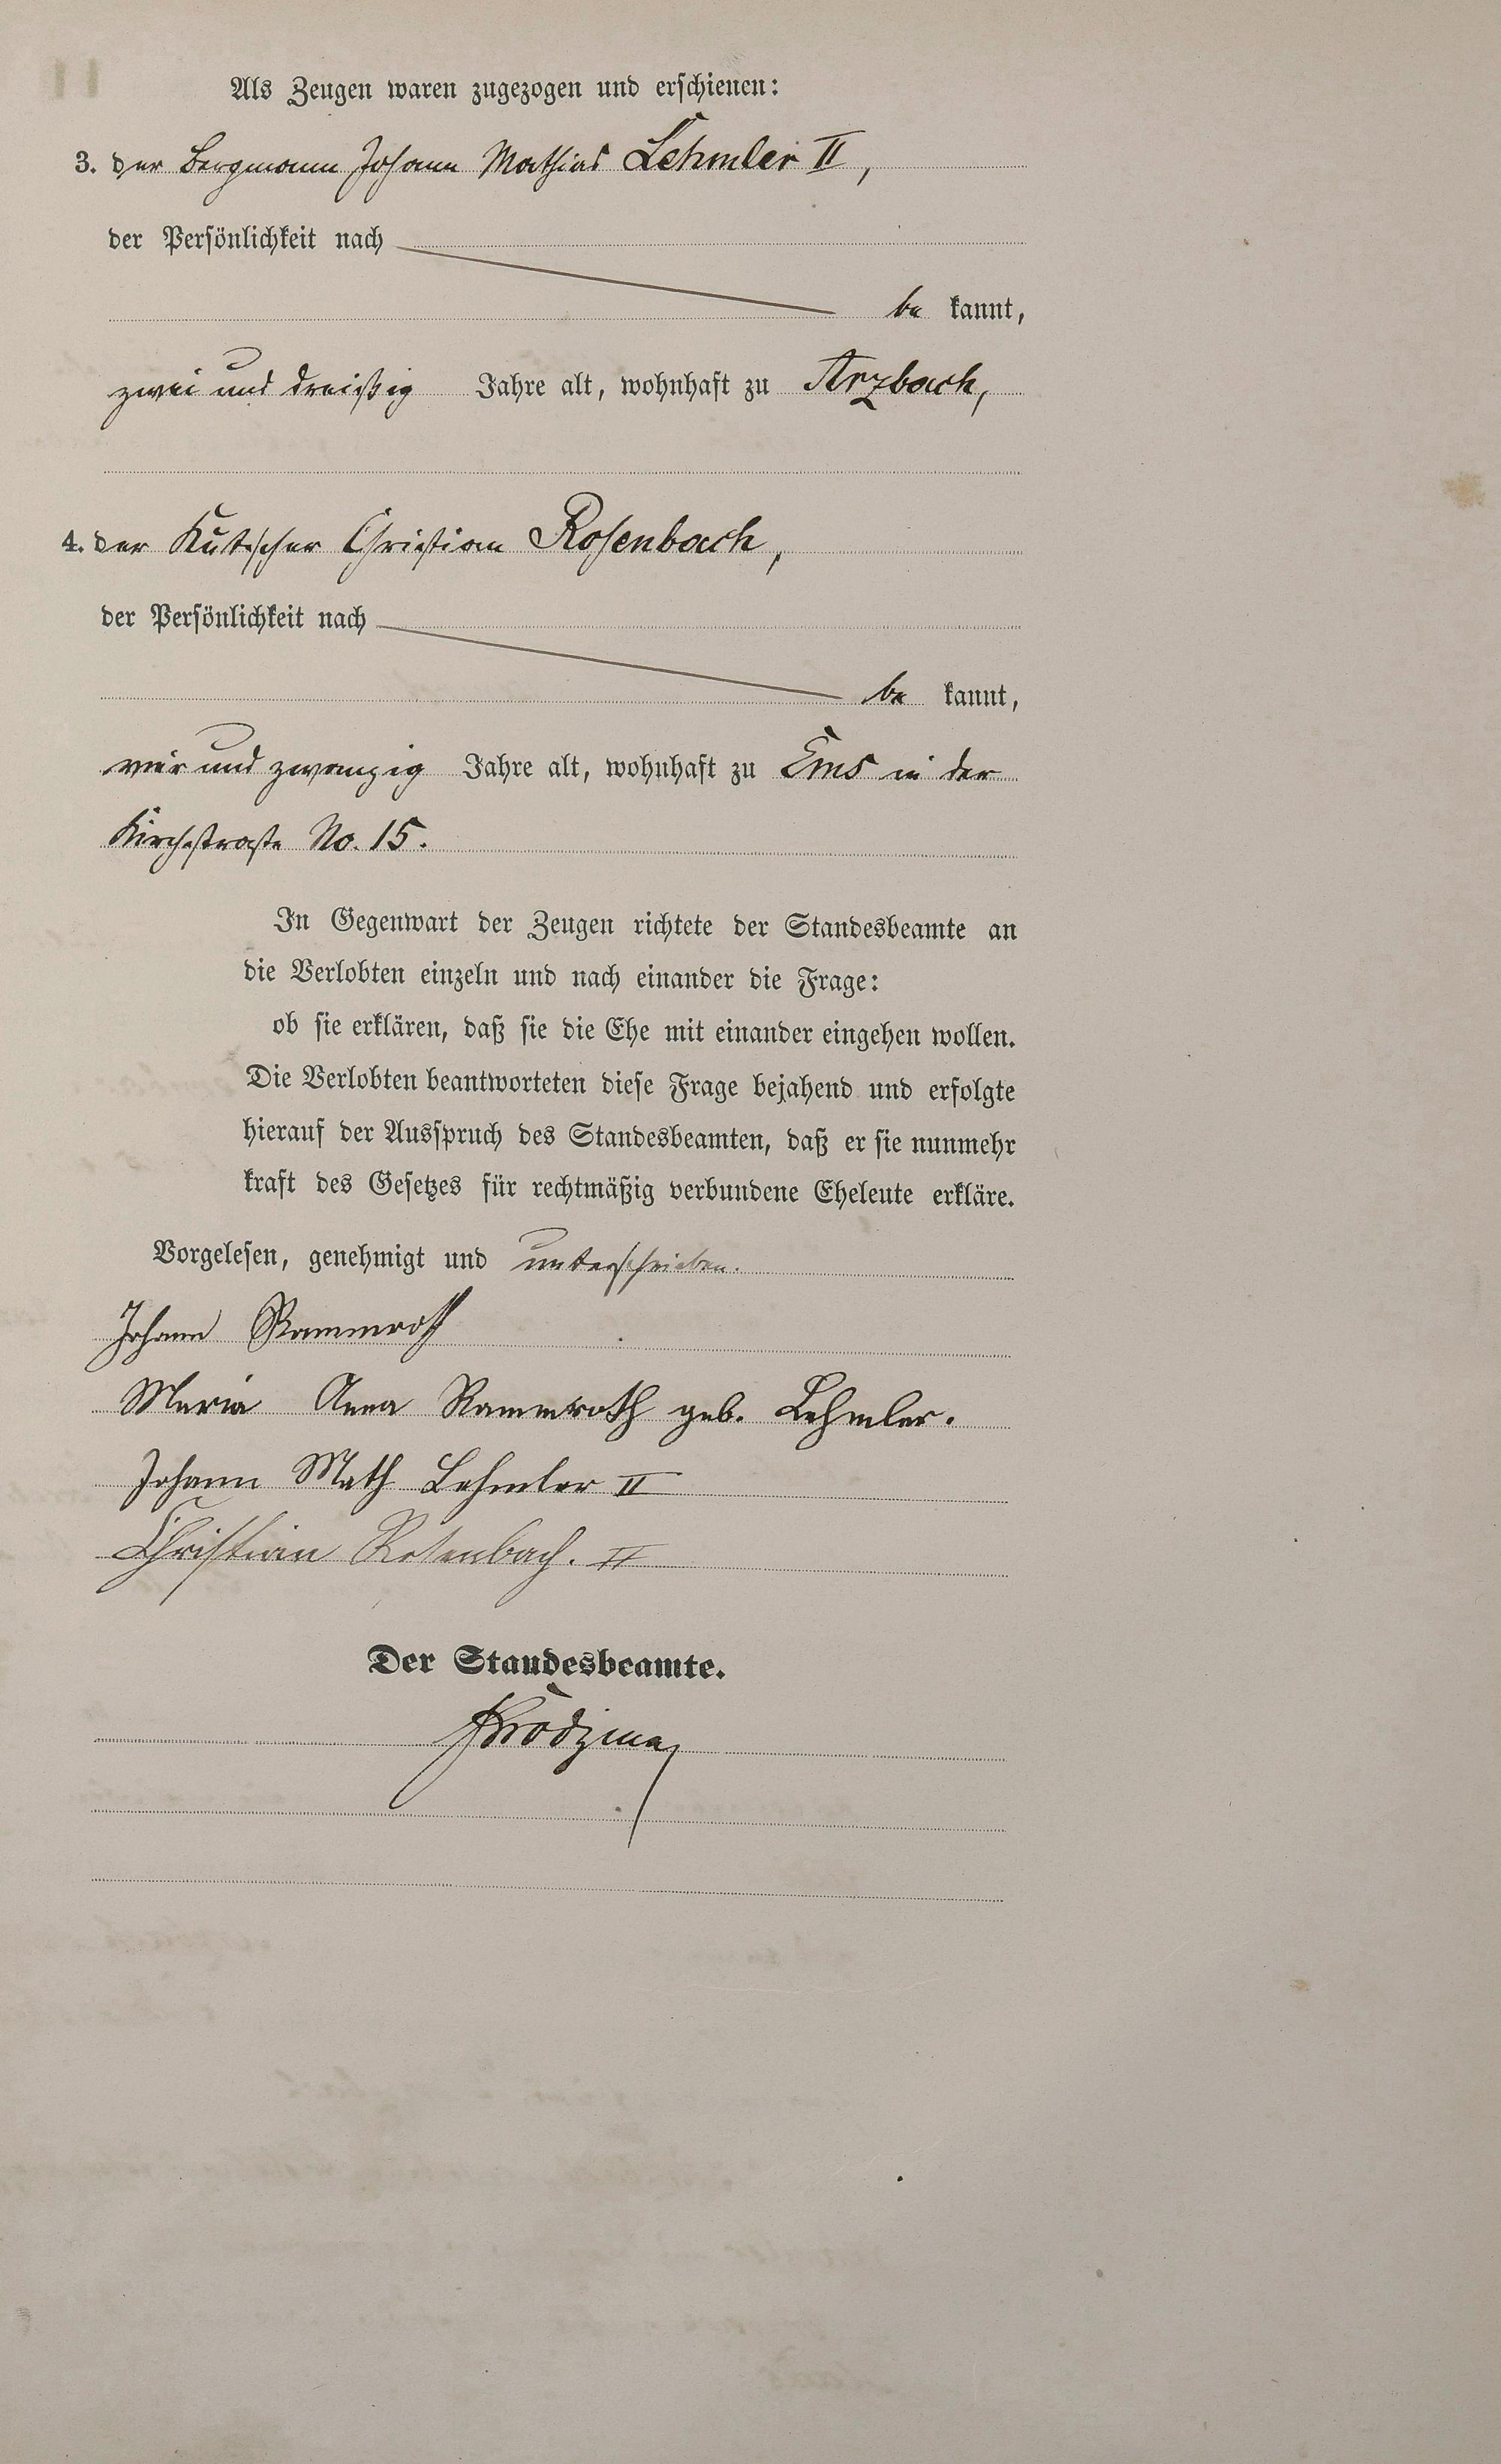 Als Zeugen waren zugezogen und erschienen:
3. der Bergmann Johann Mathias Lehmler II,
der Persönlichkeit nach
be kannt,
zwei und dreißig Jahre alt, wohnhaft zu Arzbach,
4. der Kutscher Christian Rosenbach,
der Persönlichkeit nach
be kannt,
vier und zwanzig Jahre alt, wohnhaft zu Ems in der
Kirchstraße No. 15.
In Gegenwart der Zeugen richtete der Standesbeamte an
die Verlobten einzeln und nach einander die Frage:
ob sie erklären, daß sie die Ehe mit einander eingehen wollen.
Die Verlobten beantworteten diese Frage bejahend und erfolgte
hierauf der Ausspruch des Standesbeamten, daß er sie nunmehr
kraft des Gesetzes für rechtmäßig verbundene Eheleute erkläre.
Vorgelesen, genehmigt und unterschrieben.
Johann Rammroth
Maria Anna Rammroth geb. Lehmler.
Johann Math Lehmler II
Christian Rosenbach. II
Der Standesbeamte.